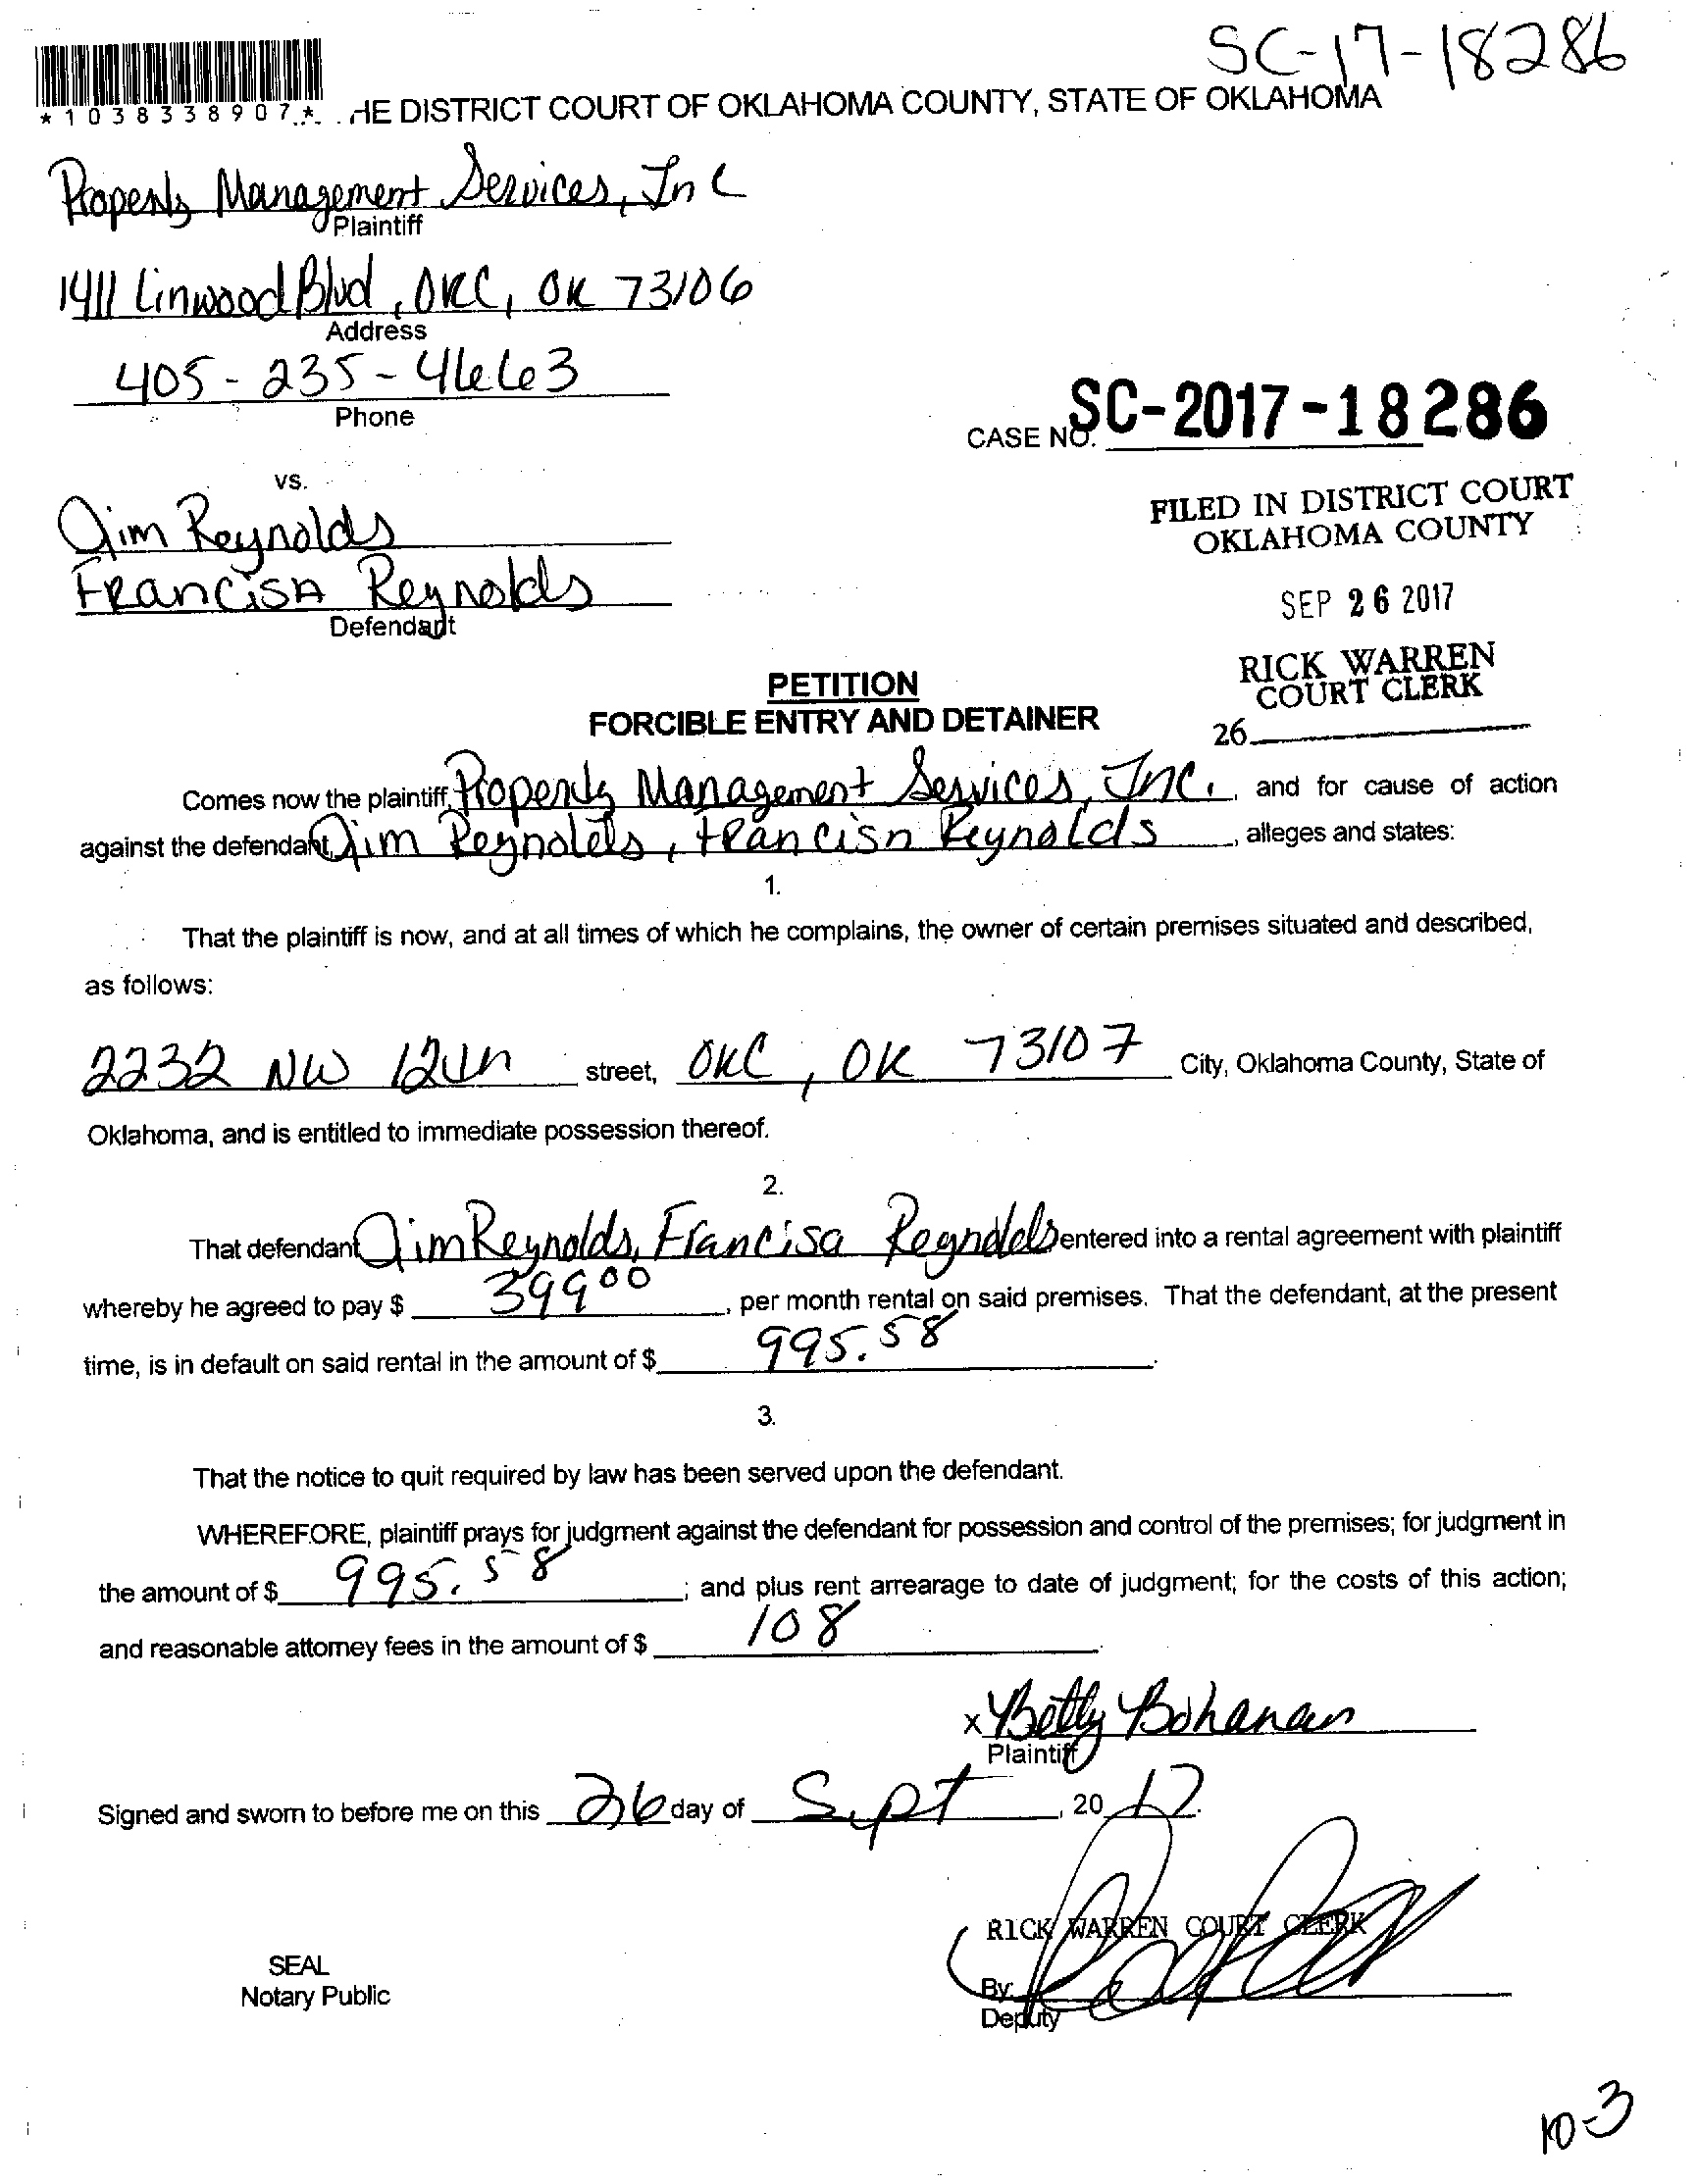 SC-17-18286
*1038338907*
HE DISTRICT COURT OF OKLAHOMA COUNTY, STATE OF OKLAHOMA
Property Management Services, Inc
Plaintiff
1411 Linwood Blvd, OKC, OK 73106
Address
405-235-4663
Phone
CASE NO. SC-2017-18286
vs.
FILED IN DISTRICT COURT
OKLAHOMA COUNTY
Jim Reynolds
Francisa Reynolds
Defendant
SEP 26 2017
RICK WARREN
COURT CLERK
26
PETITION
FORCIBLE ENTRY AND DETAINER
Comes now the plaintiff, Property Management Services, Inc., and for cause of action
against the defendant, Jim Reynolds, Francisa Reynolds, alleges and states:
1.
That the plaintiff is now, and at all times of which he complains, the owner of certain premises situated and described,
as follows:
2232 NW 12th street, OKC, OK 73107 City, Oklahoma County, State of
Oklahoma, and is entitled to immediate possession thereof.
2.
That defendant Jim Reynolds, Francisa Reynolds entered into a rental agreement with plaintiff
whereby he agreed to pay $ 399 00, per month rental on said premises. That the defendant, at the present
time, is in default on said rental in the amount of $ 995.58.
3.
That the notice to quit required by law has been served upon the defendant.
WHEREFORE, plaintiff prays for judgment against the defendant for possession and control of the premises; for judgment in
the amount of $ 995.58; and plus rent arrearage to date of judgment; for the costs of this action;
and reasonable attorney fees in the amount of $ 108.
x Betty Bohanan
Plaintiff
Signed and sworn to before me on this 26 day of Sept, 20 17.
RICK WARREN COURT CLERK
SEAL
Notary Public
By:
Deputy
10-3